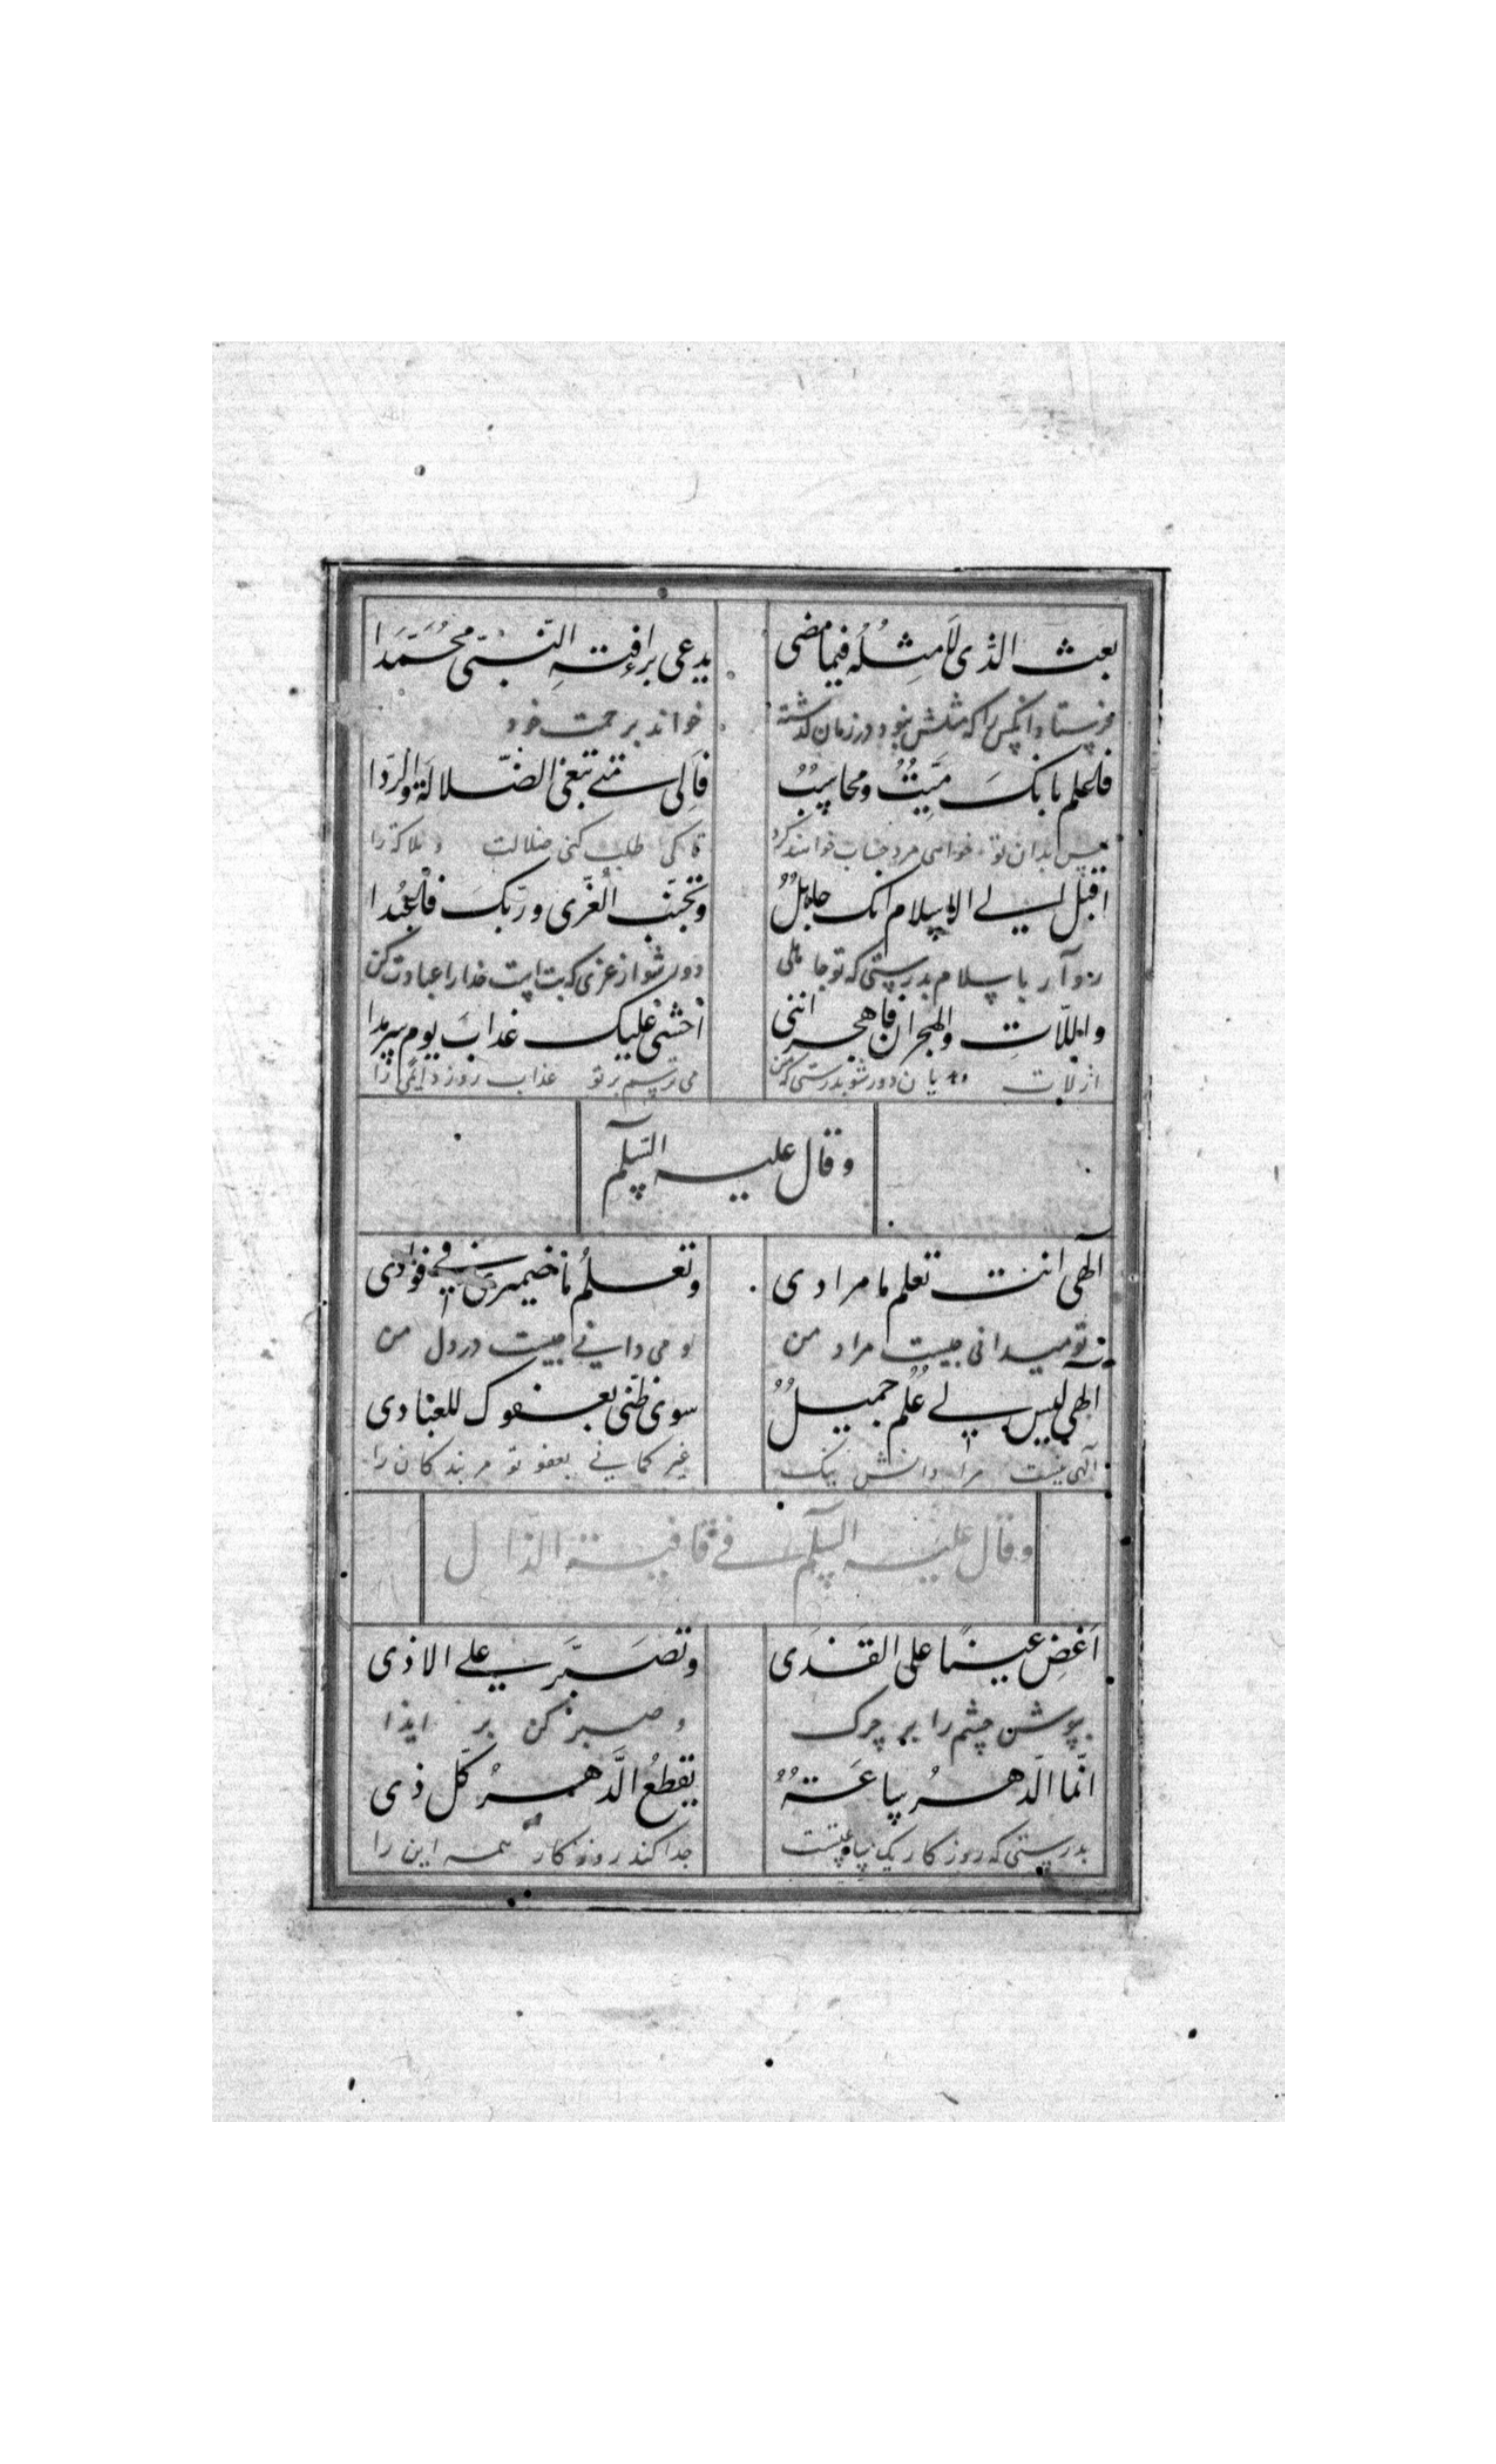 بعث الذی لا مثله فیما مضی
یدعی برافته النبی محمدا
فرستاد آنکس را که مثلش نبود در زمان گذشته
خواند برحمت خود
فاعلم بانک میت ومحاسب
فالی متی تبغی الضلالة والردا
پس بدان تو خواهی مرد حساب خواهند کرد
تا کی طلب کنی ضلالت و هلاکة را
اقبل الی الاسلام انک جاهل
وتجنب العزی وربک فاعبدا
رو آر باسلام بدرستی که تو جاهلی
دور شو از عزی که بت است خدا را عبادت کن
واللات والهجران فاهجر اننی
اخشی علیک عذاب یوم سرمدا
از لات دور شو بدرستی که من
می ترسم بر تو عذاب روز دایمی را
وقال علیه السلم
الهی انت تعلم ما مرادی
وتعلم ما ضمیری فی فوادی
تو میدانی چیست مراد من
و می دانی چیست در دل من
الهی لیس لی علم جمیل
سوی ظنی بعفوک للعبادی
الهی نیست مرا دانش نیک
غیر گمانی بعفو تو مر بندکان را
وقال علیه السلم فی قافیة الذال
اغض عینا علی القذی
وتصبر علی الاذی
بپوش چشم را بر چرک
و صبر کن بر ایذا
انما الدهر ساعة
یقطع الدهر کل ذی
بدرستی که روزکار یک ساعتست
جدا کند روزکار همه این را